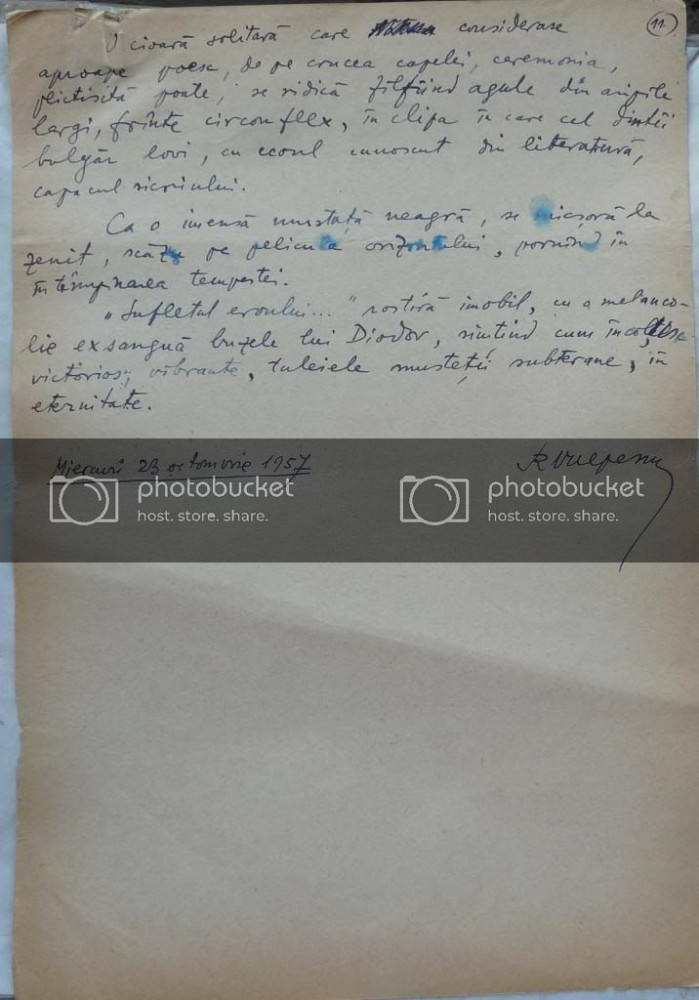 11.
O cioară solitară care considerase
aproape poesc, de pe crucea capelei, ceremonia,
plictisită poate, se ridică fîlfîind agale din aripile
largi, frînte circonflex, în clipa în care cel dintîi
bulgăr lovi, cu ecoul cunoscut din literatură,
capacul sicriului.
Ca o imensă mustață neagră, se micșoră la
zenit, scăzu pe pelicula orizontului, pornind în
întîmpinarea tempestei.
„Sufletul eroului..." rostiră imobil, cu o melanco-
lie exsanguă buzele lui Diodor, simțind cum încolțesc
victorios, vibrante, tuleiele mustății subterane, în
eternitate.
Miercuri 23 octomvrie 1957
RVulpescu
photobucket photobucket
host. store. share. host. store. share.